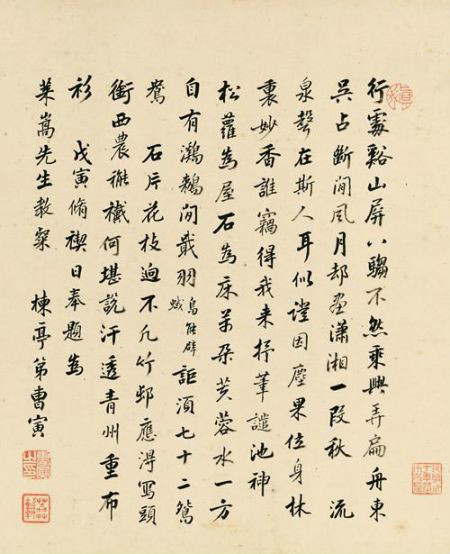 行窩谿山屏八騶不然乘興弄扁舟東
吳占斷閒風月却畫瀟湘一段秋 流
泉聲在斯人耳似證因塵果位身林
裏妙香誰竊得我来抒筆譴池神
松蘿為屋石為床萬朵芙蓉水一方
自有鸂鶒閒戢羽鳥能辟蜮詎須七十二鴛
鴦 石片花枝迥不凡竹邨應得寫頭
銜西農褦襶何堪說汗透青州重布
衫 戊寅脩禊日奉題為
萊嵩先生教粲 楝亭弟曹寅